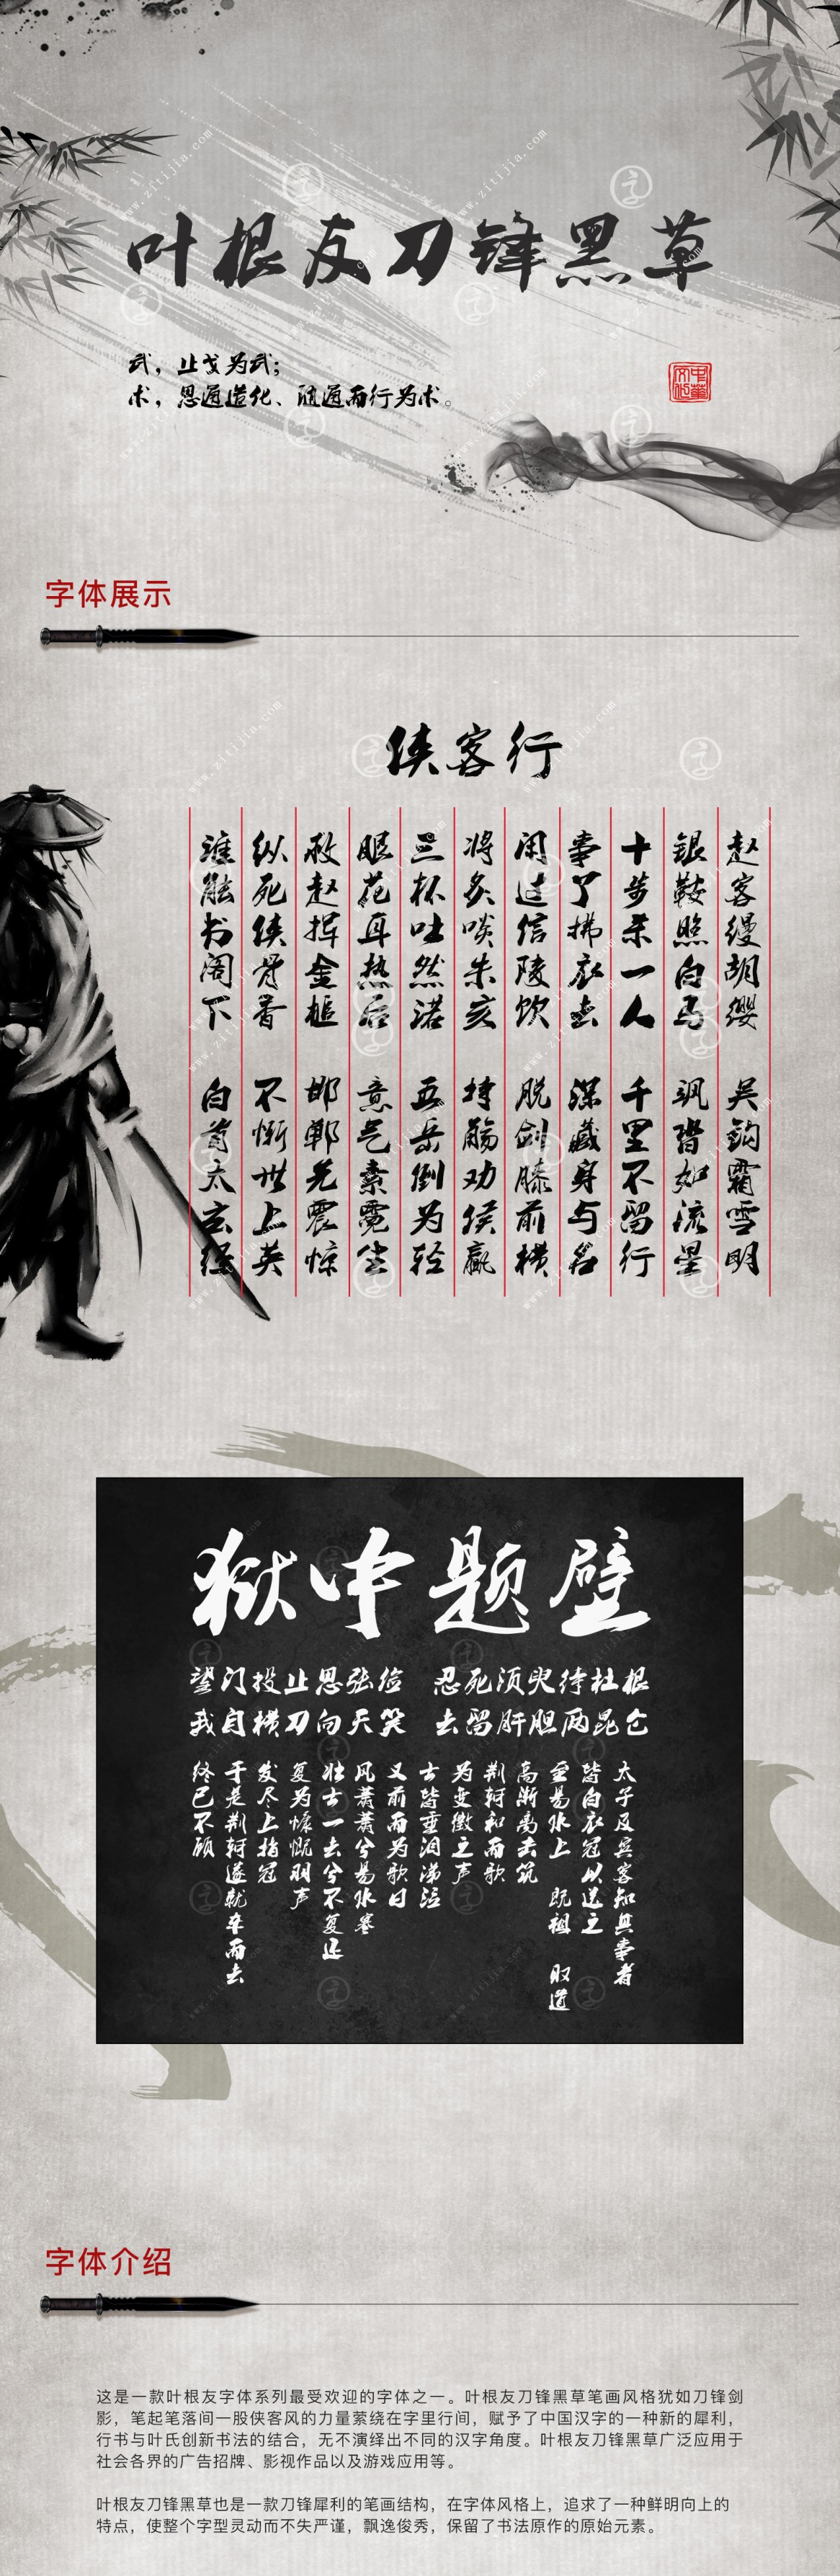 叶根友刀锋黑草
武，止戈为武；
术，思通造化、随通而行为术。
中华文化
字体展示
侠客行
赵客缦胡缨 吴钩霜雪明
银鞍照白马 飒沓如流星
十步杀一人 千里不留行
事了拂衣去 深藏身与名
闲过信陵饮 脱剑膝前横
将炙啖朱亥 持觞劝侯嬴
三杯吐然诺 五岳倒为轻
眼花耳热后 意气素霓生
救赵挥金槌 邯郸先震惊
纵死侠骨香 不惭世上英
谁能书阁下 白首太玄经
狱中题壁
望门投止思张俭 忍死须臾待杜根
我自横刀向天笑 去留肝胆两昆仑
太子及宾客知其事者
皆白衣冠以送之
至易水上 既祖 取道
高渐离击筑
荆轲和而歌
为变徵之声
士皆垂泪涕泣
又前而为歌曰
风萧萧兮易水寒
壮士一去兮不复还
复为慷慨羽声
发尽上指冠
于是荆轲遂就车而去
终已不顾
字体介绍
这是一款叶根友字体系列最受欢迎的字体之一。叶根友刀锋黑草笔画风格犹如刀锋剑
影，笔起笔落间一股侠客风的力量萦绕在字里行间，赋予了中国汉字的一种新的犀利，
行书与叶氏创新书法的结合，无不演绎出不同的汉字角度。叶根友刀锋黑草广泛应用于
社会各界的广告招牌、影视作品以及游戏应用等。
叶根友刀锋黑草也是一款刀锋犀利的笔画结构，在字体风格上，追求了一种鲜明向上的
特点，使整个字型灵动而不失严谨，飘逸俊秀，保留了书法原作的原始元素。
www.zitijia.com